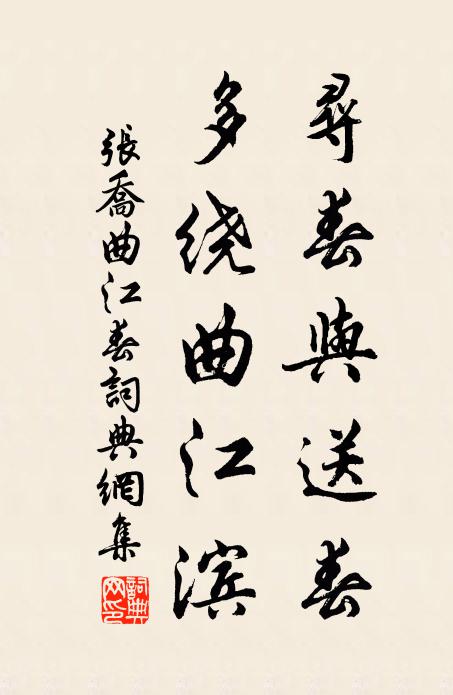 尋春與送春
多绕曲江滨
張喬曲江春詞典網集
詞典网印